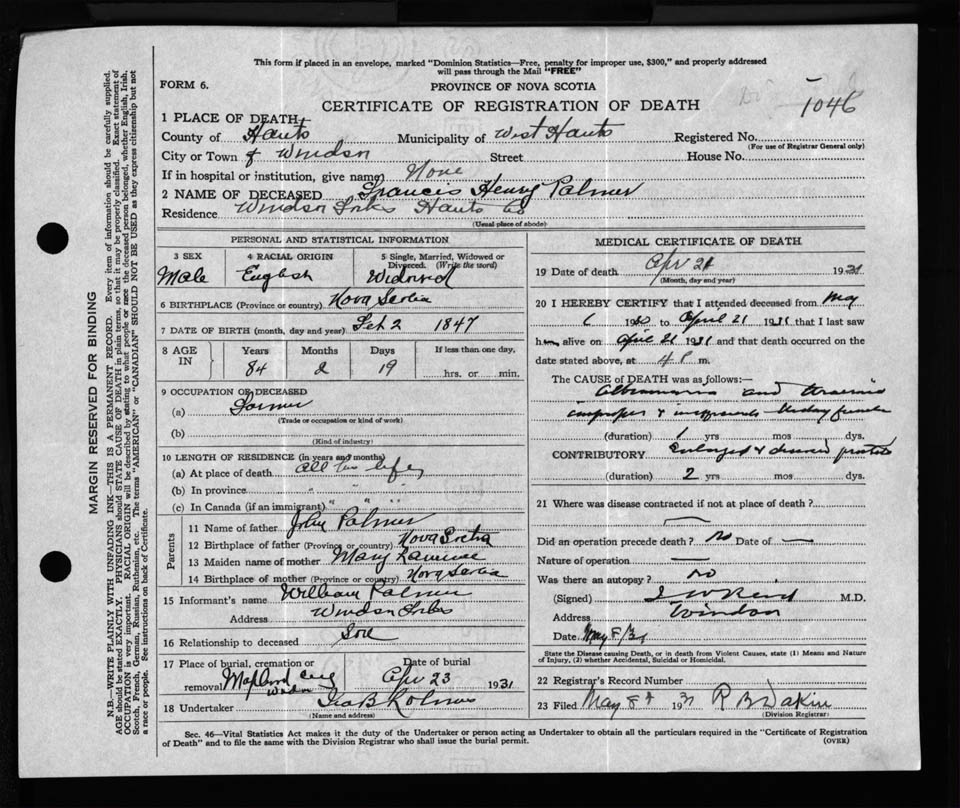 This form if placed in an envelope, marked "Dominion Statistics—Free, penalty for improper use, $300," and properly addressed
will pass through the Mail "FREE"
FORM 6.
PROVINCE OF NOVA SCOTIA
CERTIFICATE OF REGISTRATION OF DEATH
1046
1 PLACE OF DEATH
County of Hants Municipality of West Hants Registered No.
(For use of Registrar General only)
City or Town of Windsor Street House No.
If in hospital or institution, give name) None
2 NAME OF DECEASED Francis Henry Palmer
Residence Windsor Forks Hants Co
(Usual place of abode)
PERSONAL AND STATISTICAL INFORMATION
3 SEX
Male
4 RACIAL ORIGIN
English
5 Single, Married, Widowed or
Divorced. (Write the word)
Widowed
6 BIRTHPLACE (Province or country) Nova Scotia
7 DATE OF BIRTH (month, day and year) Feb 2 1847
8 AGE
IN
Years Months Days If less than one day,
84 2 19 hrs. or min.
9 OCCUPATION OF DECEASED
(a) Farmer
(Trade or occupation or kind of work)
(b)
(Kind of industry)
10 LENGTH OF RESIDENCE (in years and months)
(a) At place of death all his life
(b) In province " " "
(c) In Canada (if an immigrant) " " "
Parents
11 Name of father John Palmer
12 Birthplace of father (Province or country) Nova Scotia
13 Maiden name of mother Mary
14 Birthplace of mother (Province or country) Nova Scotia
15 Informant's name William Palmer
Address Windsor Forks
16 Relationship to deceased Son
17 Place of burial, cremation or
removal
Windsor
Date of burial
Apr 23 1931
18 Undertaker
(Name and address)
MEDICAL CERTIFICATE OF DEATH
19 Date of death Apr 21 1931
(Month, day and year)
20 I HEREBY CERTIFY that I attended deceased from May
6 1930 to April 21 1931 that I last saw
him alive on April 21 1931 and that death occurred on the
date stated above, at 4 P m.
The CAUSE OF DEATH was as follows:—
and
(duration) 1 yrs mos dys.
CONTRIBUTORY Enlarged & diseased prostate
(duration) 2 yrs mos dys.
21 Where was disease contracted if not at place of death?
—
Did an operation precede death? No Date of —
Nature of operation —
Was there an autopsy? No
(Signed) M.D.
Address Windsor
Date May 8/31
State the Disease causing Death, or in death from Violent Causes, state (1) Means and Nature
of Injury, (2) whether Accidental, Suicidal or Homicidal.
22 Registrar's Record Number
23 Filed May 8th 1931 R B Dakin
(Division Registrar)
Sec. 46—Vital Statistics Act makes it the duty of the Undertaker or person acting as Undertaker to obtain all the particulars required in the "Certificate of Registration
of Death" and to file the same with the Division Registrar who shall issue the burial permit.
(OVER)
MARGIN RESERVED FOR BINDING
N.B.—WRITE PLAINLY WITH UNFADING INK—THIS IS A PERMANENT RECORD. Every item of information should be carefully supplied.
AGE should be stated EXACTLY. PHYSICIANS should STATE CAUSE OF DEATH in plain terms, so that it may be properly classified. Exact statement of
OCCUPATION is very important. RACIAL ORIGIN will be described by stating to what people or race the deceased person belonged, whether English, Irish,
Scotch, French, German, Russian, Ruthenian, etc. The terms "AMERICAN" or "CANADIAN" SHOULD NOT BE USED as they express citizenship but not
a race or people. See instructions on back of Certificate.